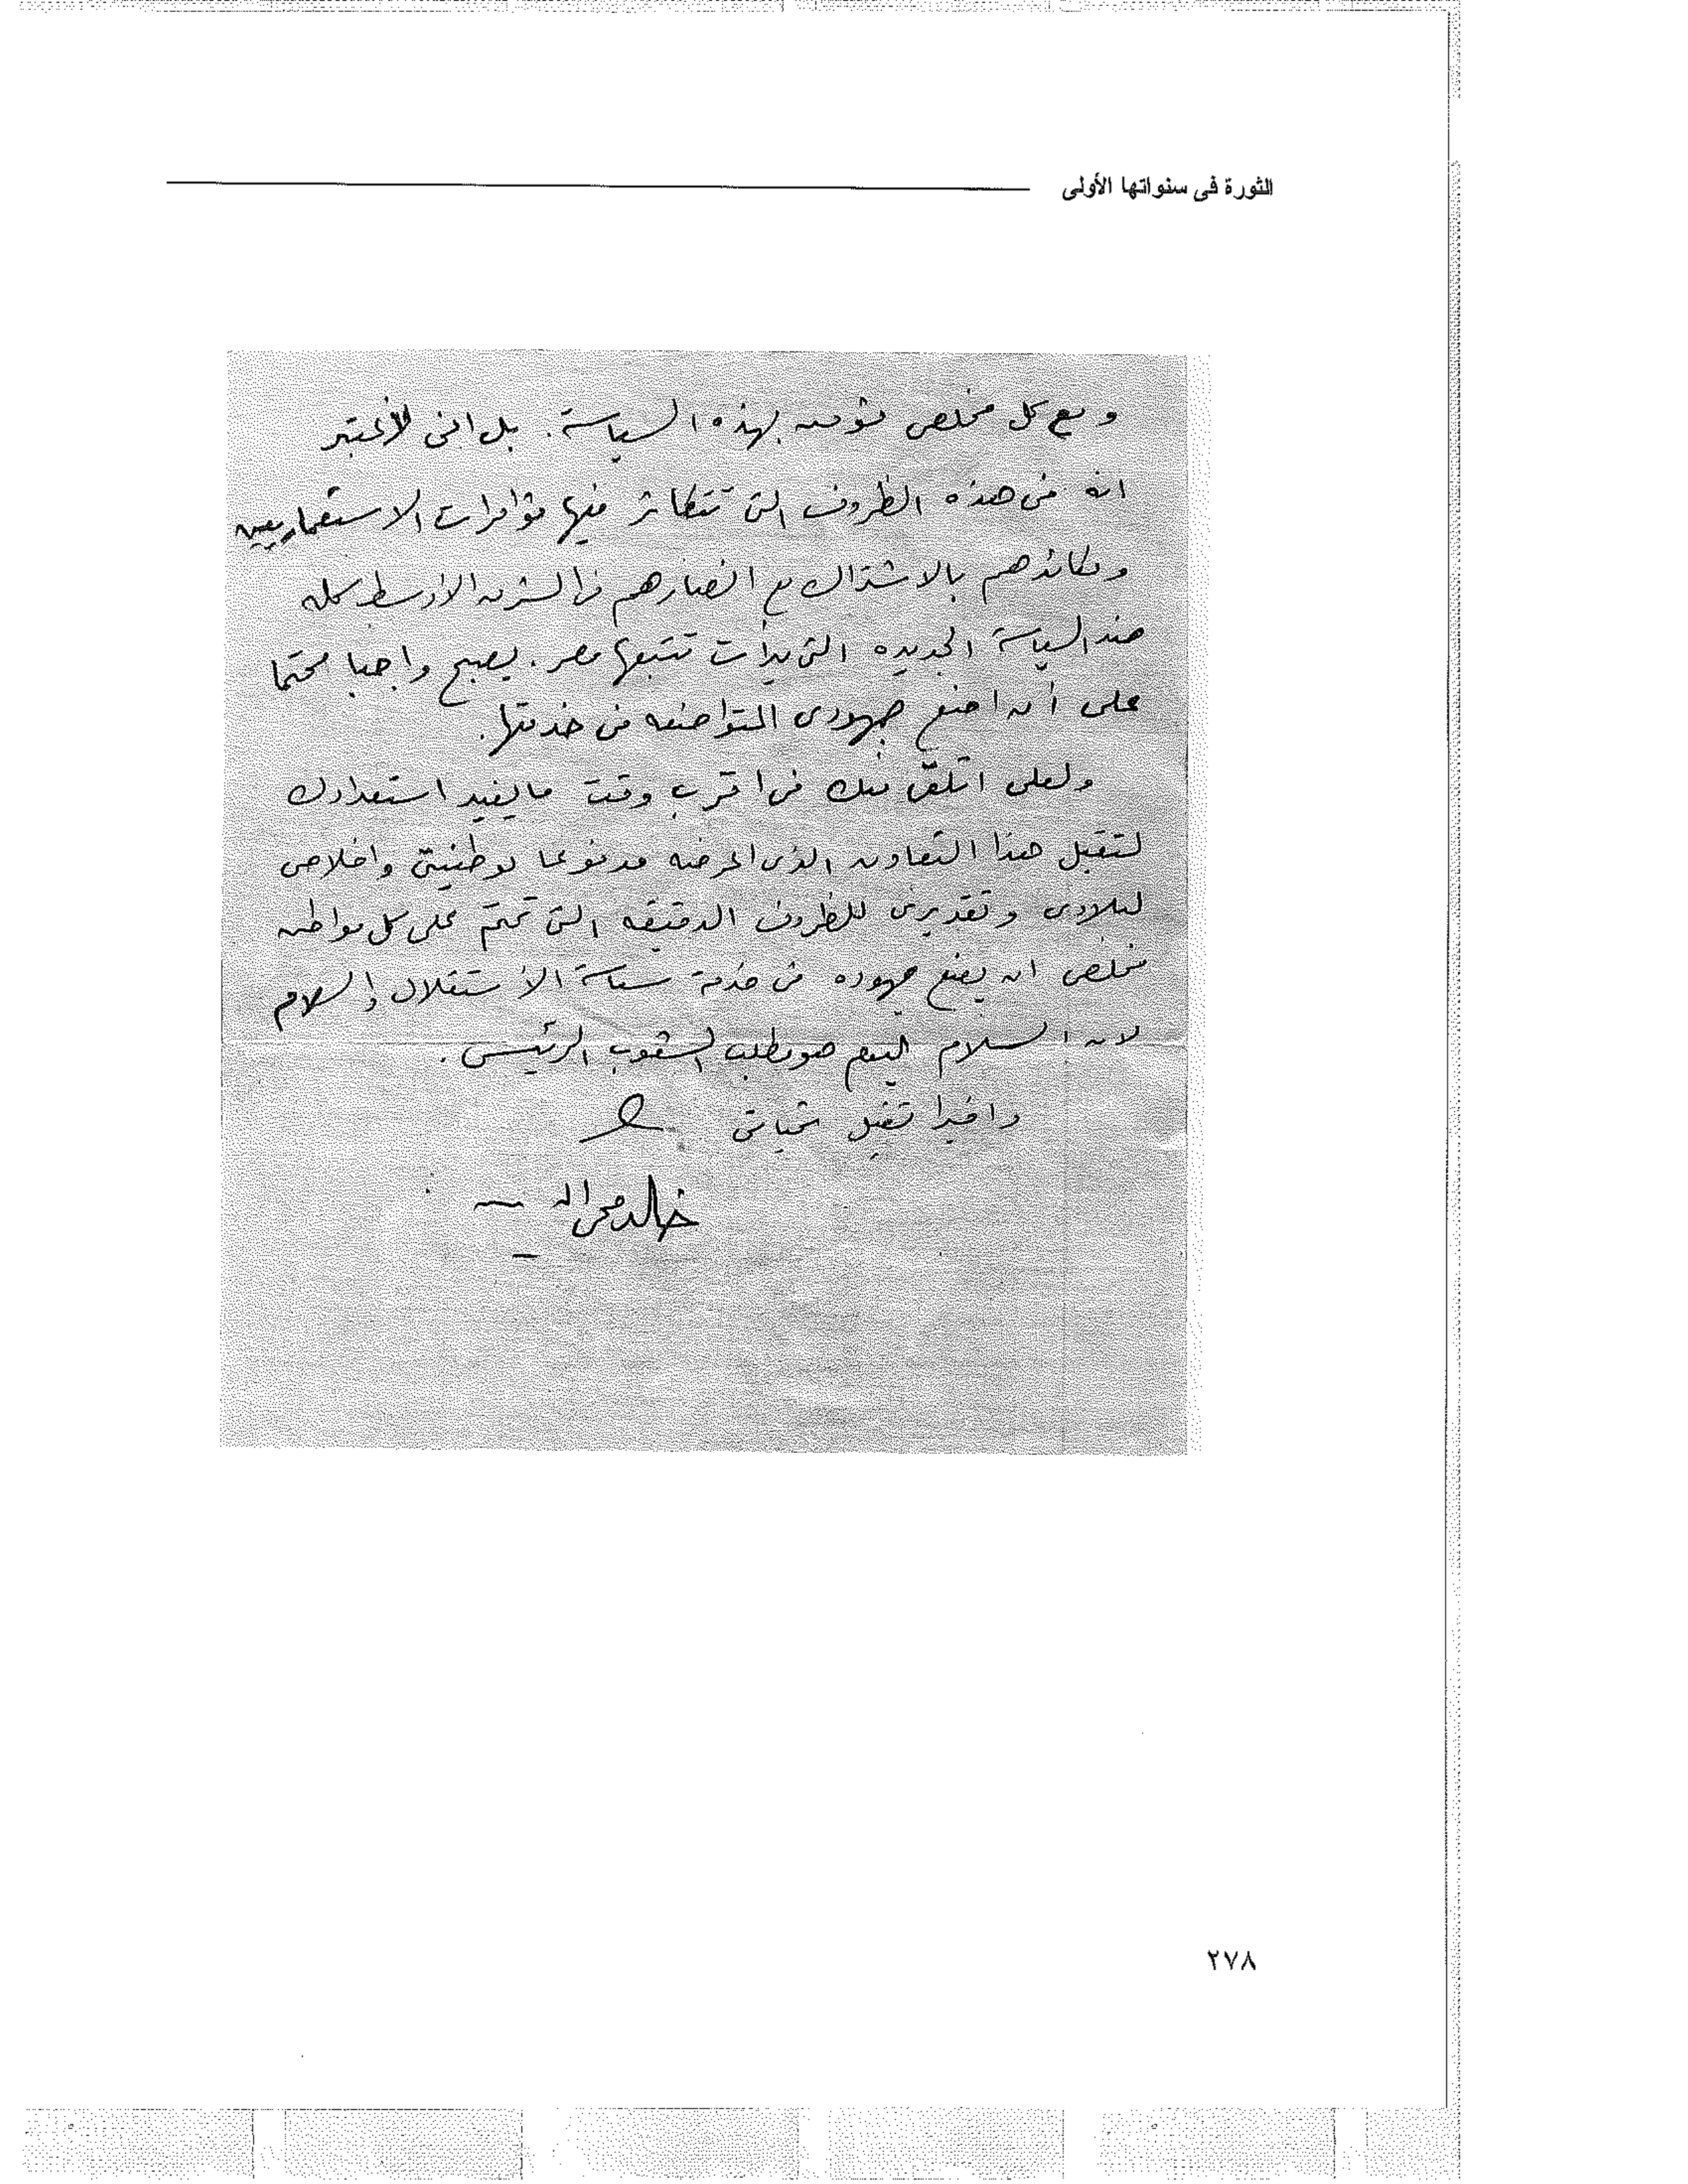 الثورة فى سنواتها الأولى
ومع كل مخلص مؤمن بهذه السياسة. بل انى لأعتبر
انه فى هذه الظروف التى تتكاثر فيها مؤامرات الاستعماريين
ومكائدهم بالاشتراك مع انصارهم فى الشرق الأوسط كله
ضد السياسة الجديده التى بدأت تتبعها مصر. يصبح واجبا محتما
على أن اضع جهودى المتواضعه فى خدمتها.
ولعلى اتلقّى منك فى اقرب وقت ما يفيد استعدادك
لتقبل هذا التعاون الذى اعرضه مدفوعا بوطنيتى واخلاصى
لبلادى وتقديرى للظروف الدقيقه التى تحتم على كل مواطن
مخلص ان يضع جهوده فى خدمة سياسة الأستقلال والسلام
لان السلام اليوم هو مطلب الشعوب الرئيسى.
واخيرا تقبل تحياتى
خالد محى الد
٢٧٨